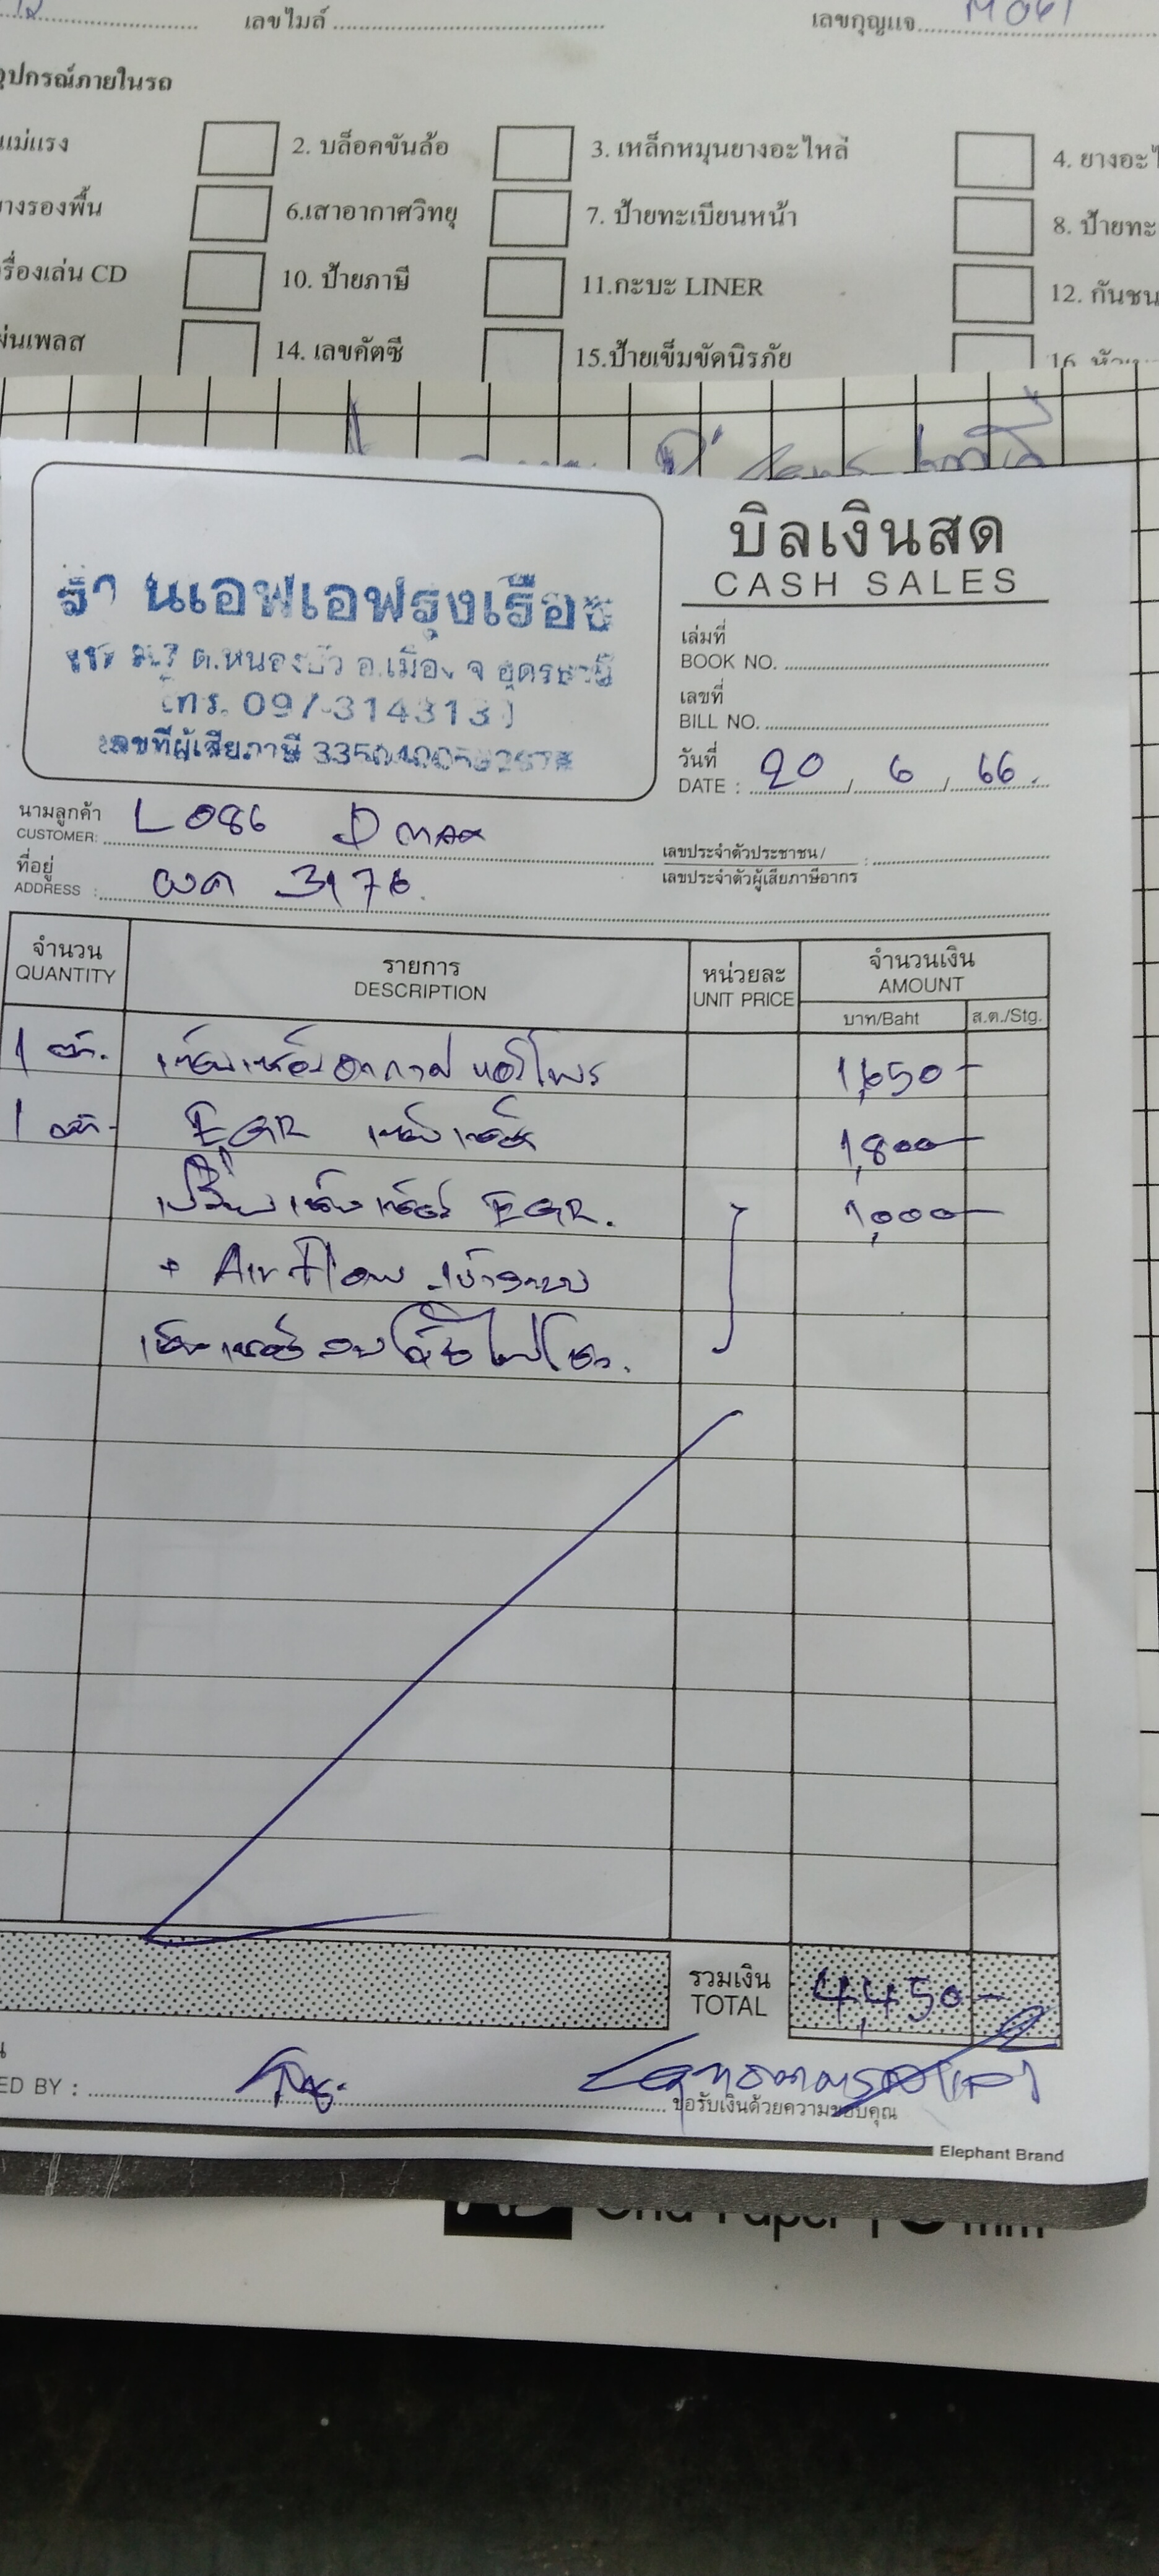 เลขไมล์
เลขกุญแจ M 061
อุปกรณ์ภายในรถ
แม่แรง 2. บล็อคขันล้อ 3. เหล็กหมุนยางอะไหล่ 4. ยางอะไ
ยางรองพื้น 6.เสาอากาศวิทยุ 7. ป้ายทะเบียนหน้า 8. ป้ายทะ
ครื่องเล่น CD 10. ป้ายภาษี 11.กะบะ LINER 12. กันชน
ผ่นเพลส 14. เลขคัตซี 15.ป้ายเข็มขัดนิรภัย 16.
บิลเงินสด
CASH SALES
ร้านเอฟเอฟรุ่งเรือง
ม.7 ต.หนองบัว อ.เมือง จ อุดรธานี
โทร. 097-314313
เลขที่ผู้เสียภาษี
เล่มที่
BOOK NO.
เลขที่
BILL NO.
วันที่
DATE : 20 / 6 / 66.
นามลูกค้า
CUSTOMER: L086 D max
ที่อยู่
ADDRESS : 3176
เลขประจำตัวประชาชน /
เลขประจำตัวผู้เสียภาษีอากร :
จำนวน รายการ หน่วยละ จำนวนเงิน
QUANTITY DESCRIPTION UNIT PRICE AMOUNT
บาท/Baht ส.ต./Stg.
1 ตัว. เซ็นเซอร์อากาศ แอร์โฟร 1,650-
1 ตัว- EGR เซ็นเซอร์ 1,800-
เปลี่ยนเซ็นเซอร์ EGR. 1,000-
+ Air Flow
เซ็นเซอร์
รวมเงิน
TOTAL 4,450-
ED BY :
ขอรับเงินด้วยความขอบคุณ
Elephant Brand
Grid Paper | 5 mm